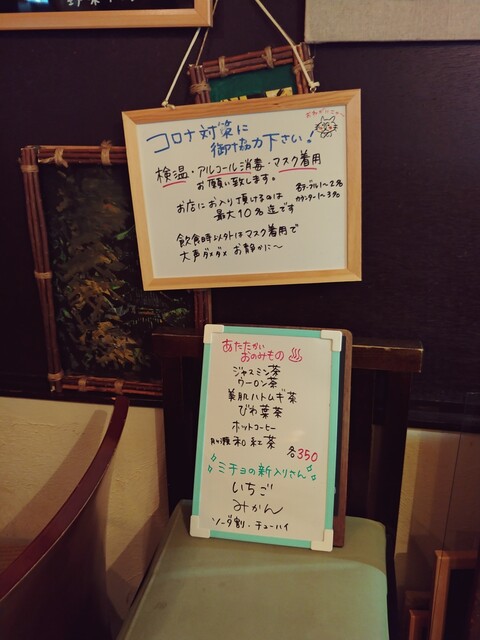 おねがいにゃ〜
コロナ対策に
御協力下さい!
検温・アルコール消毒・マスク着用
お願い致します。
お店にお入り頂けるのは
最大10名迄です
各テーブル1〜2名
カウンター1〜3名
飲食時以外はマスク着用で
大声ダメダメ お静かに〜
あたたかい
おのみもの
ジャスミン茶
ウーロン茶
美肌ハトムギ茶
びわ葉茶
ホットコーヒー
和紅茶
各350
ミチョの新入りさん
いちご
みかん
ソーダ割・チューハイ